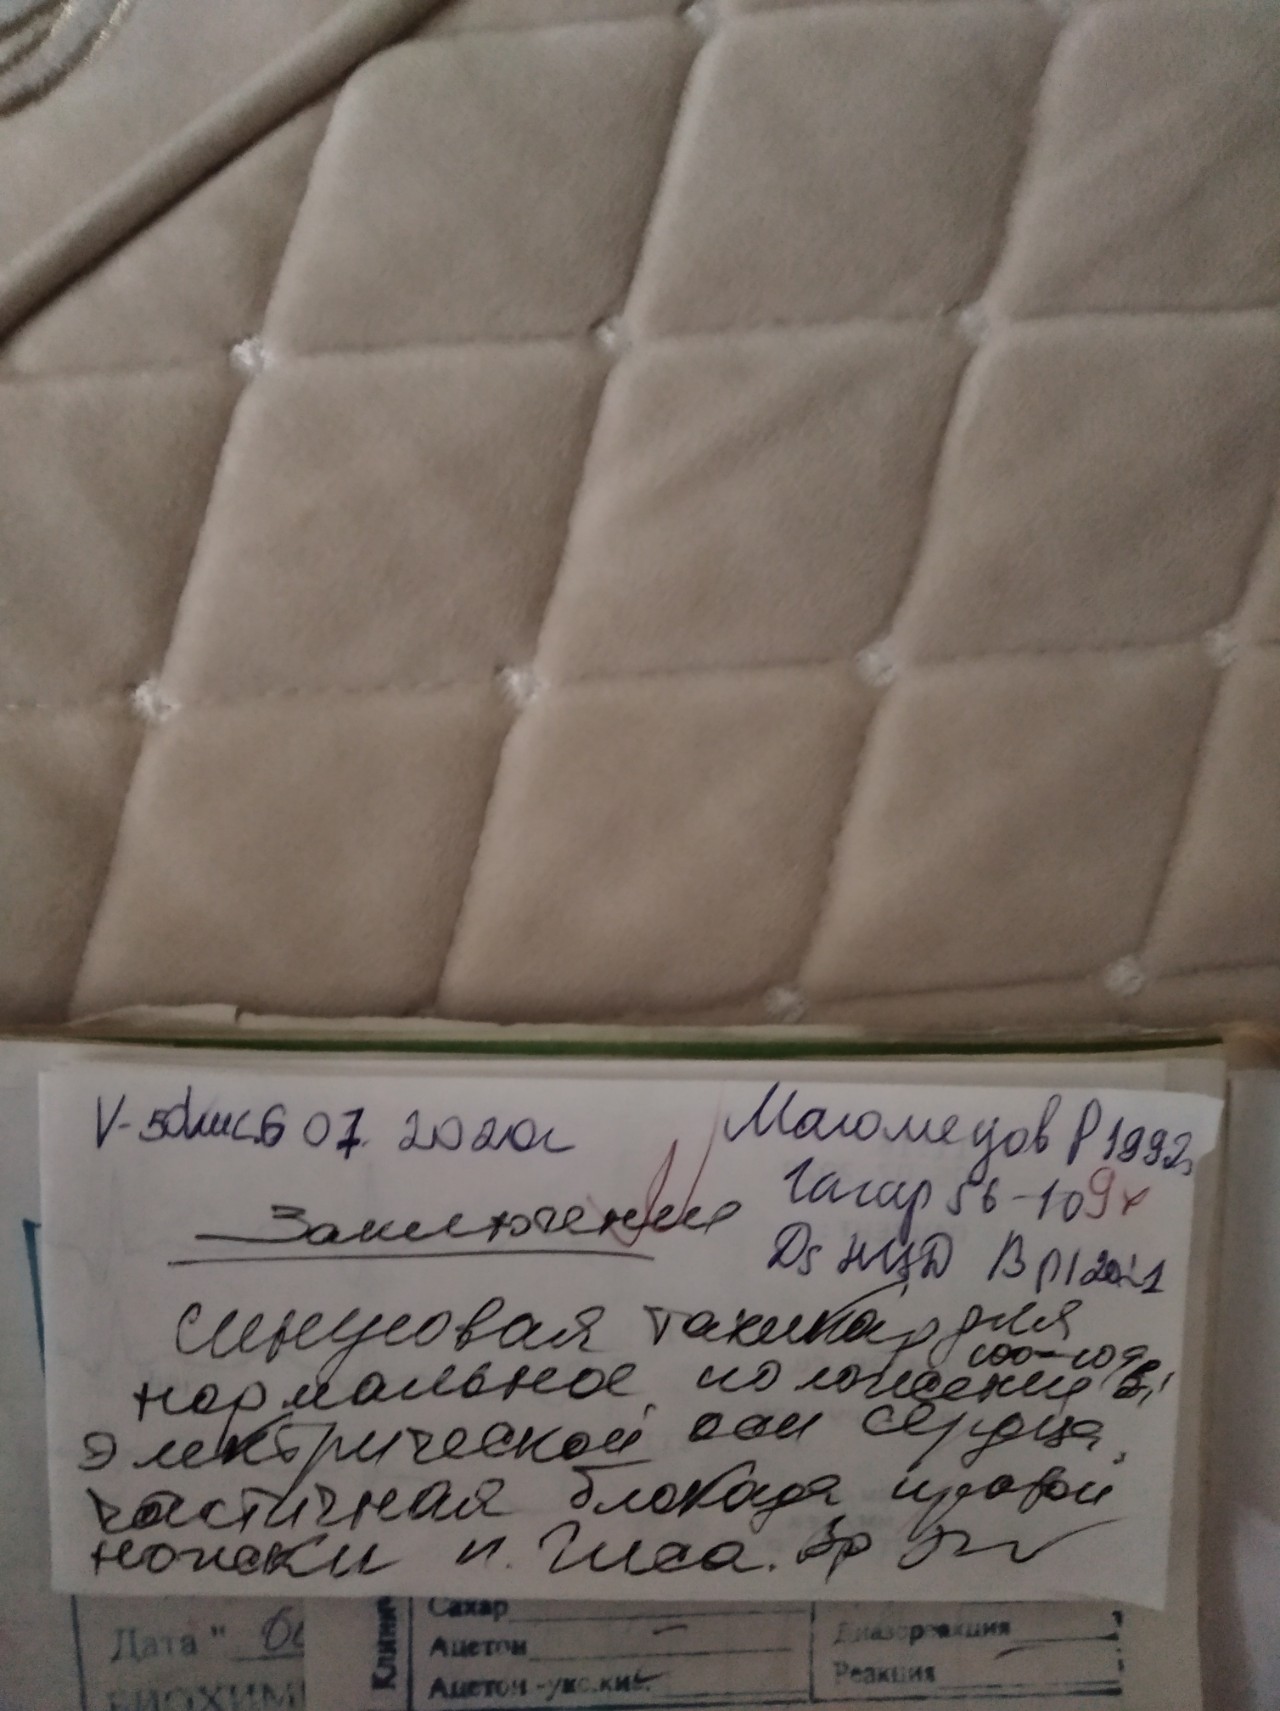 V-50мм/с 6 07. 2020г
Магомедов Р 1992г
Гагар 56-109
Заключение
Ds НЦД
Синусовая тахикардия
100-109
нормальное положение
электрической оси сердца,
частичная блокада правой
ножки п. Гиса. Вр
Сахар
Ацетон
Ацетон -укс.кис.
Диазореакция
Реакция
Дата "
Клинич
БИОХИМИ